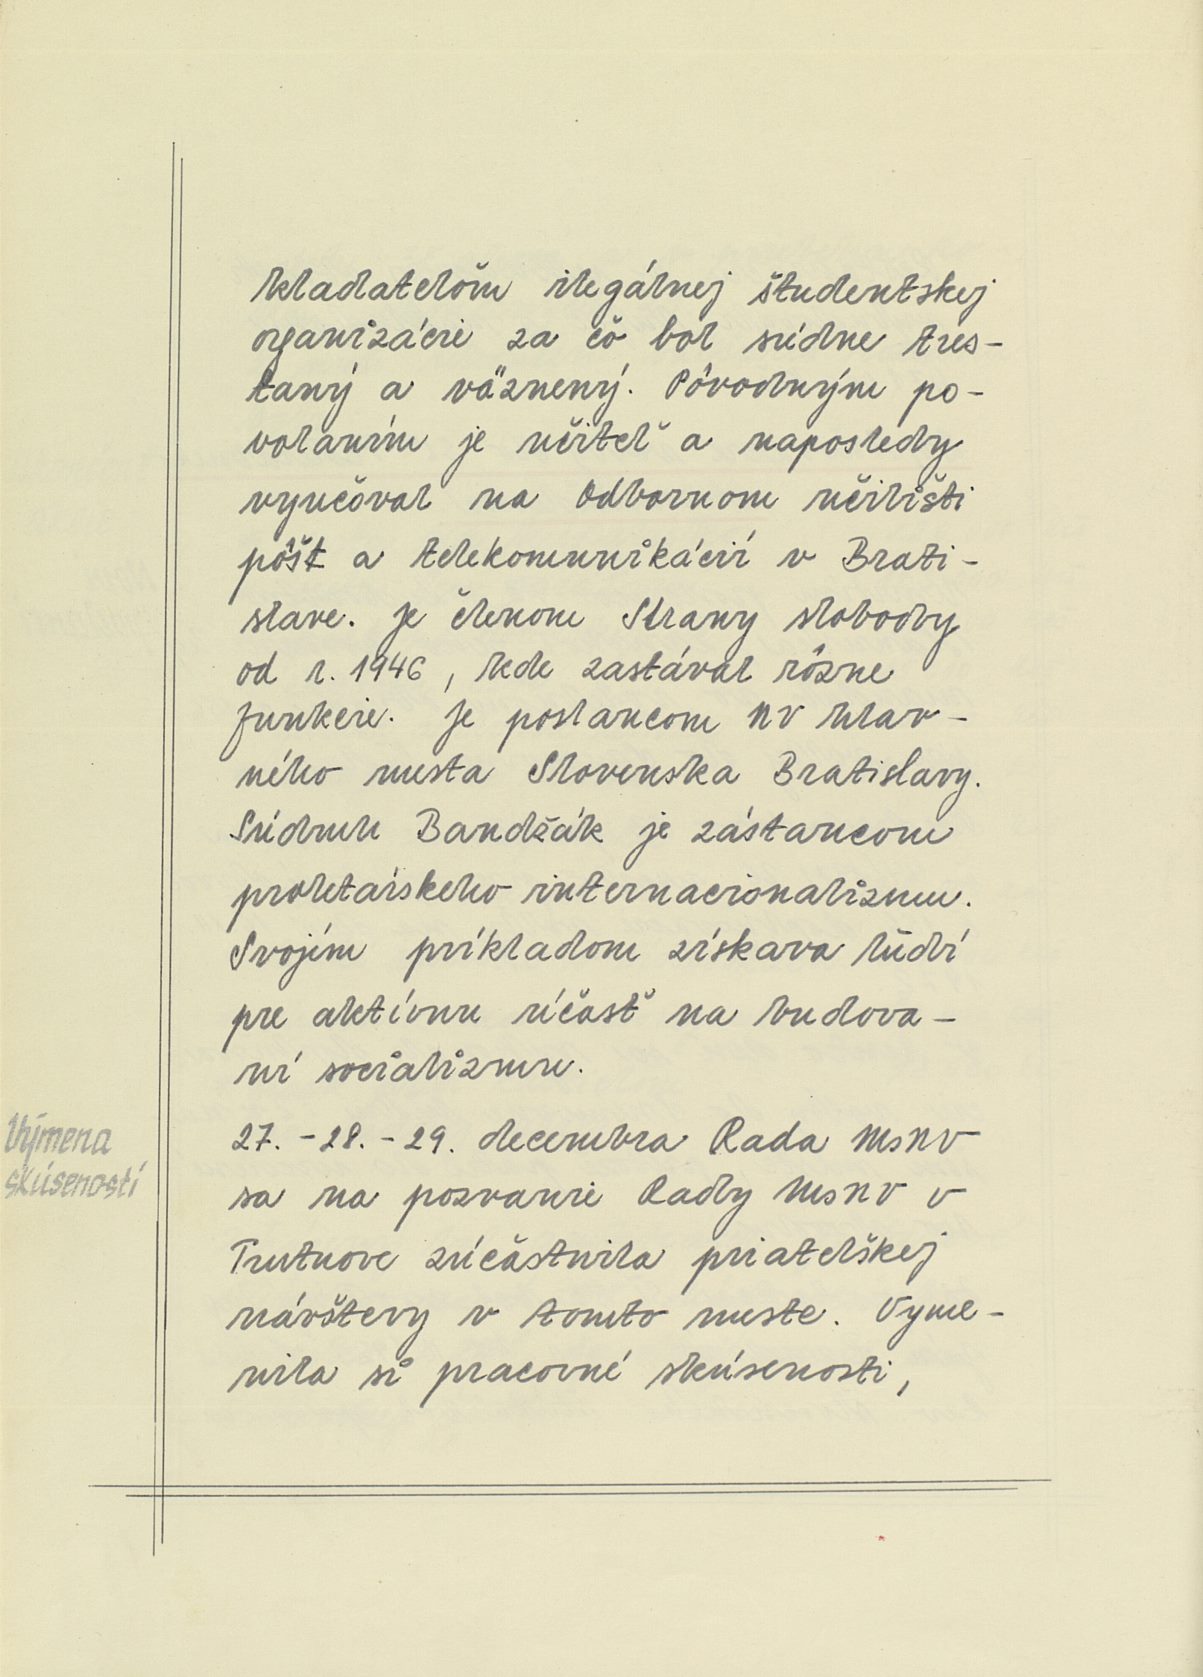 kladateľom ilegálnej študentskej
organizácie za čo bol súdne tres-
taný a väznený. Pôvodným po-
volaním je učiteľ a naposledy
vyučoval na Odbornom učilišti
pôšt a telekomunikácií v Brati-
slave. Je členom Strany slobody
od r. 1946, kde zastával rôzne
funkcie. Je poslancom NV hlav-
ného mesta Slovenska Bratislavy.
Súdruh Bandžák je zástancom
proletárskeho internacionalizmu.
Svojím príkladom získava ľudí
pre aktívnu účasť na budova-
ní socializmu.
Výmena
skúseností
27. - 28. - 29. decembra Rada MsNV
sa na pozvanie Rady MsNV v
Trutnove zúčastnila priateľskej
návštevy v tomto meste. Vyme-
nila si pracovné skúsenosti,